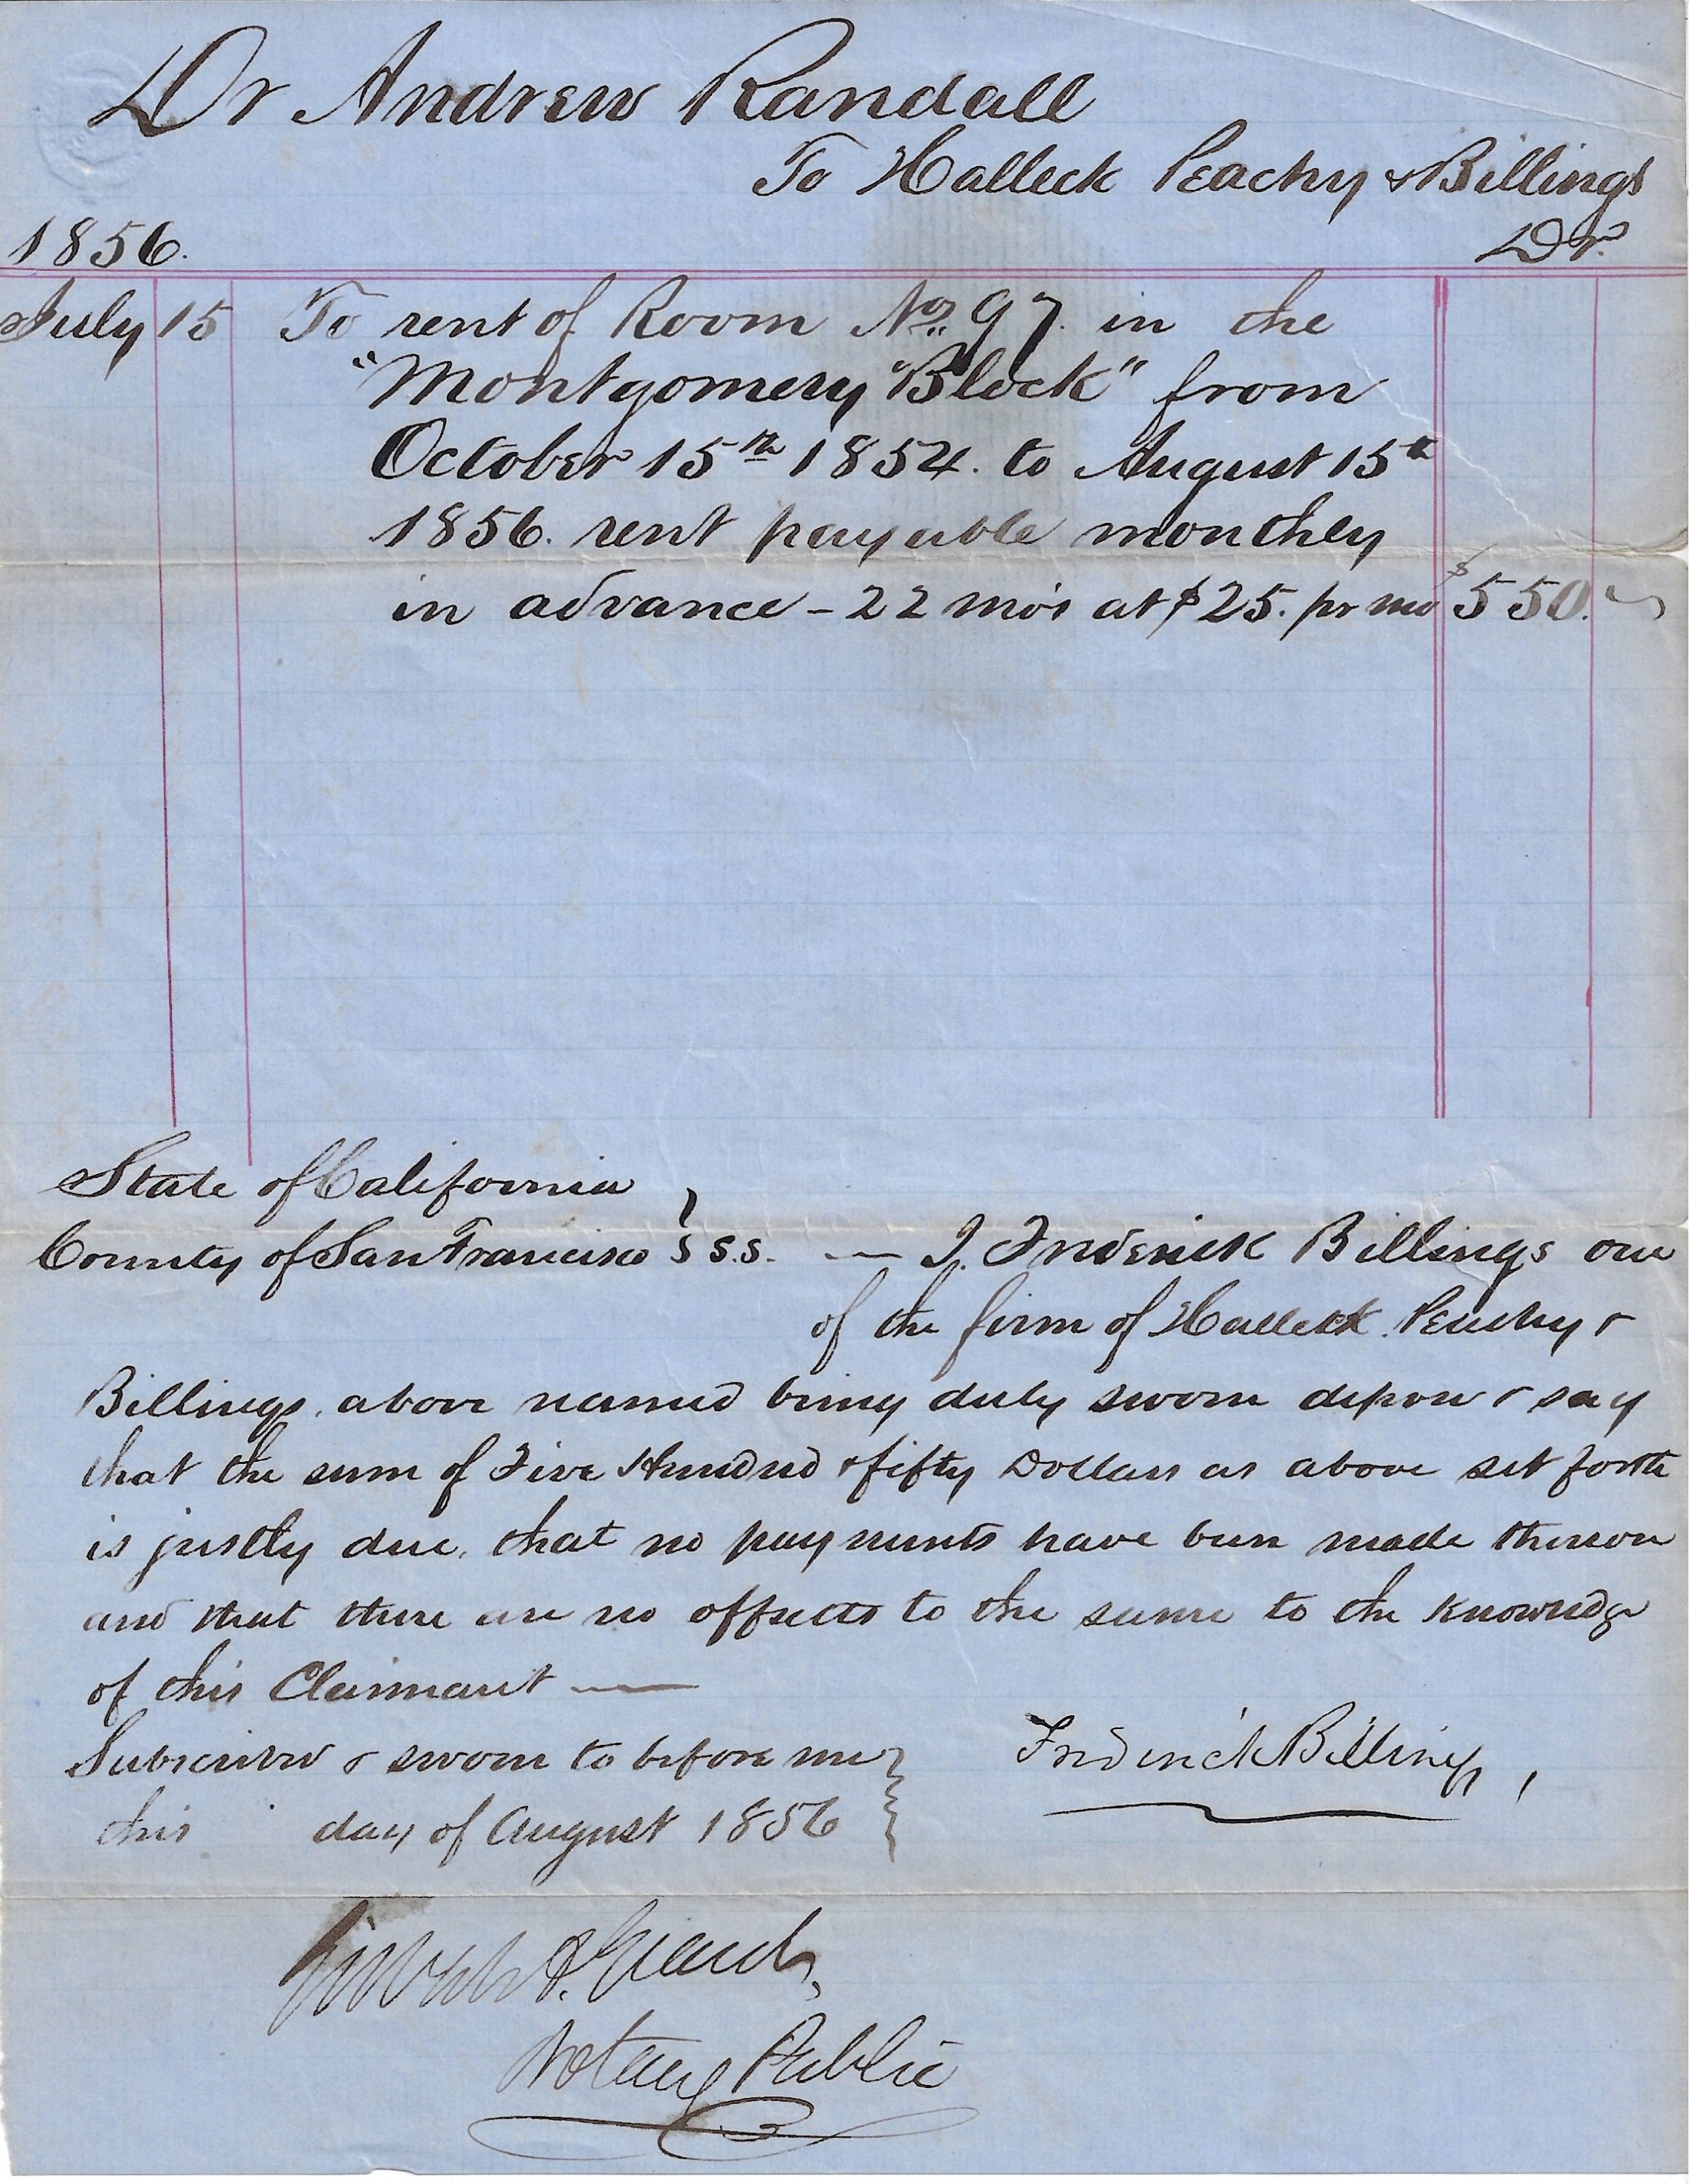 Dr Andrew Randall
To Halleck Peachy & Billings
1856. Dr.
July 15 To rent of Room No. 97. in the
"Montgomery Block" from
October 15th 1854. to August 15th
1856. rent payable monthly
in advance – 22 mo's at $25. pr mo $550.
State of California
County of San Francisco } S.S. — I. Frederick Billings one
of the firm of Halleck. Peachy &
Billings, above named being duly sworn depose & say
that the sum of Five Hundred & fifty Dollars as above set forth
is justly due, that no payments have been made thereon
and that there are no offsetts to the same to the knowledge
of this Claimant —
Subscribed & sworn to before me
this day of August 1856 }
Frederick Billings,
Notary Public